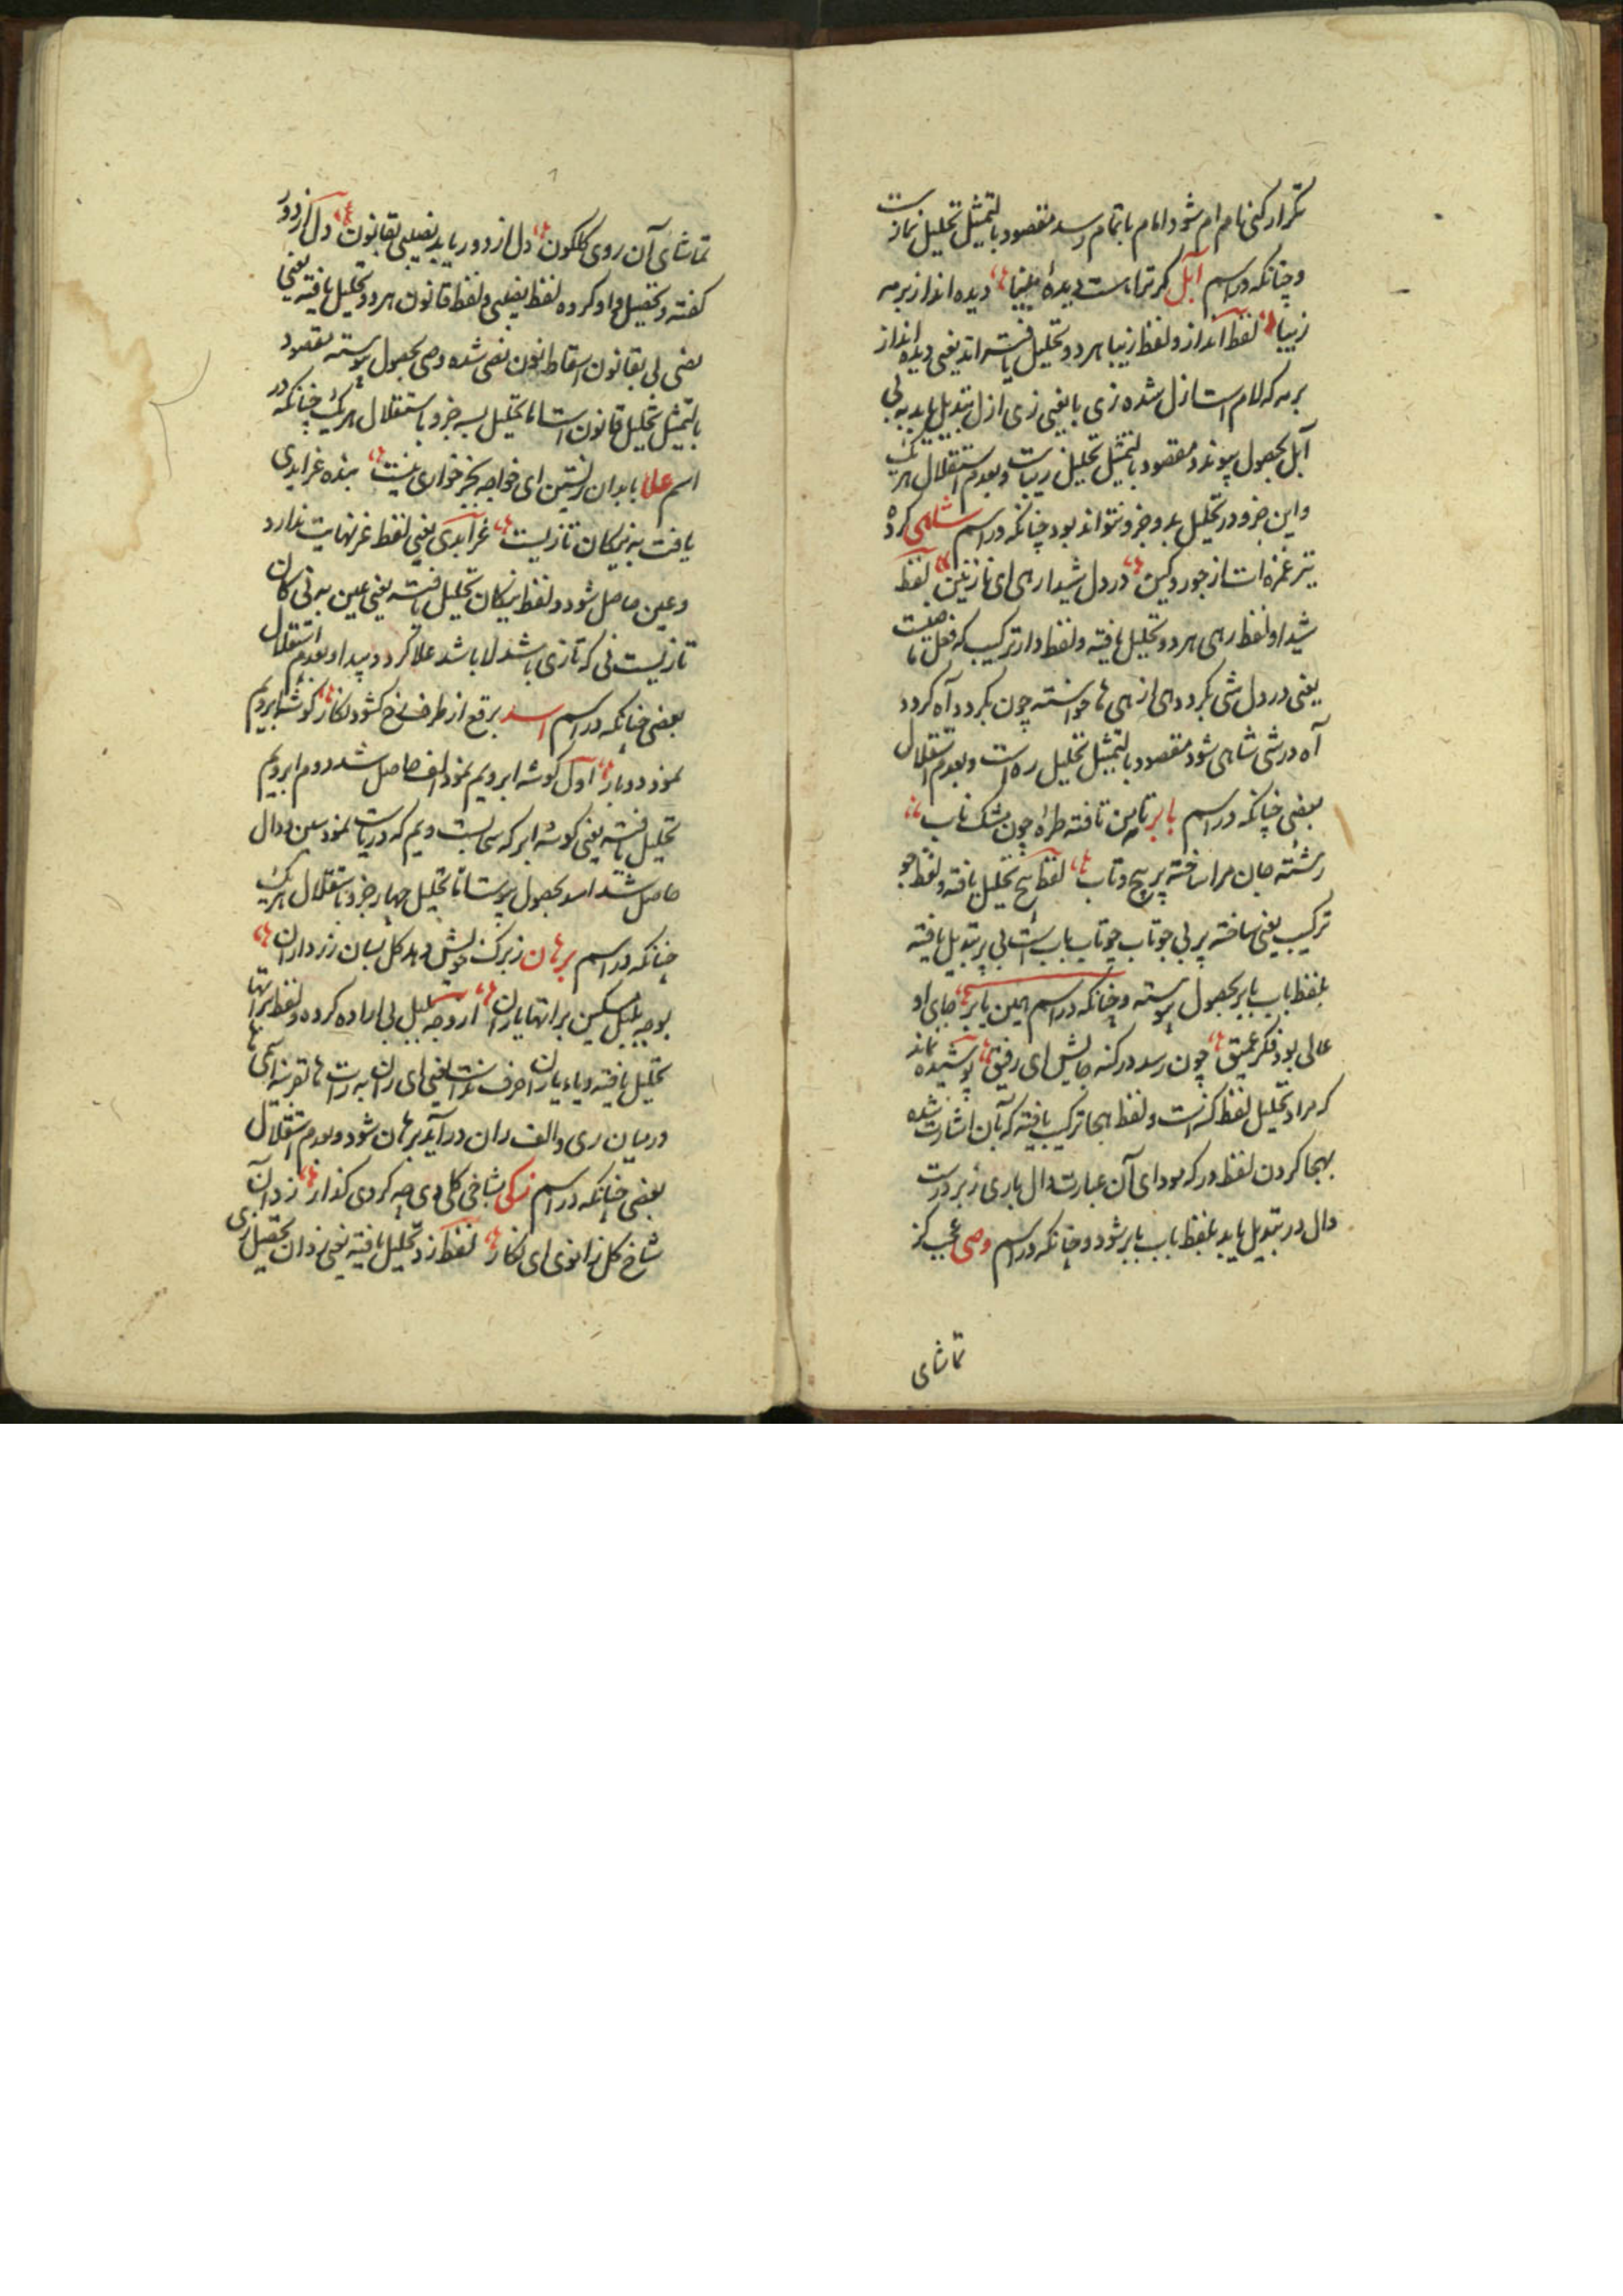 تکرار کنی نام ام شود امام باتمام رسد مقصود بالتمثیل تحلیل نماز است
و چنانکه در اسم آبل کر ترا هست دیدهٔ بینا دیده انداز بر مه
زیبا لفظ انداز و لفظ زیبا هر دو تحلیل یافته اند یعنی دیده انداز
بر مه که لام است ازل شده زی با یعنی زی از ل تبدیل یابد به بی
آبل بحصول پیوندد مقصود بالتمثیل تحلیل زیباست و بعدم استقلال هر یک
و این جزو در تحلیل بدو جزو نتواند بود چنانکه در اسم شاهی کرد
تیر غمزه ات از جور و کین در دل شیدا رهی ای نازنین لفظ
شیدا و لفظ رهی هر دو تحلیل یافته و لفظ دار ترکیب که فعل
یعنی در دل شی بکرد دهی از هی ها خواسته چون بکردد آه کردد
آه در شی شاهی شود مقصود بالتمثیل تحلیل ره است و بعدم استقلال
بعضی چنانکه در اسم بابر تا من تافته طره چون مشک ناب
رشته جان مرا ساخته پر پیچ و تاب لفظ پیچ تحلیل یافته و لفظ چو
ترکیب یعنی ساخته پر بی چو تاب چو تاب باب است بی پر تبدیل یافته
بلفظ باب بابر بحصول پیوسته و چنانکه در اسم همین بابر جای او
عالی بود فکر عمیق چون رسد در کنه جایش ای رفیق پوشیده نماند
که مراد تحلیل لفظ کنه است و لفظ بهجا ترکیب یافته که بآن اشارت شده
بهجا کردن لفظ در که مودای آن عبارت دال با ری زبر درست
دال در تبدیل یابد بلفظ باب بابر شود و چنانکه در اسم وصی عجب کز
تماشای
تماشای آن روی کلکون دل از دور یابد نصیبی بقانون دل از دور
کفته و تحصیل واو کرده لفظ نصیبی و لفظ قانون هر دو تحلیل یافته یعنی
نصی بی بقانون اسقاط نون نصی شده وصی بحصول پیوسته مقصود
بالتمثیل تحلیل قانون است اما تحلیل بسه جزو باستقلال هر یک چنانکه در
اسم علا بابدان زیستن ای خواجه بجز خواری نیست بنده غر ابدی
یافت به نیکان تا زیست غر ابدی یعنی لفظ غر نهایت ندارد
و عین حاصل شود و لفظ نیکان تحلیل یافته یعنی عین به نی کان
تا زیست نی که تازی باشد لا باشد علا کردد پیدا و بعدم استقلال
بعضی چنانکه در اسم اسد برقع از طرف رخ کشود نکار کوشه ابرویم
نمود دوبار اول کوشه ابرویم نمود الف حاصل شد دوم ابرویم
تحلیل یافته یعنی کوشه ابر که سی است ویم که دریاست نمود سین و دال
حاصل شد اسد بحصول پیوست اما تحلیل چهار جزو باستقلال هر یک
چنانکه در اسم برهان ز برک خویش دهد کل بسان زرداران
بوجه بلبل مسکین برانتها یاران از وجه بلبل بی اراده کرده و لفظ برانتها
تحلیل یافته و یاء یاران حرف نداست یعنی ای ران به راست ها بقرینه اسمی ها
در میان ری والف ران در آید برهان شود و بعدم استقلال
بعضی چنانکه در اسم زکی بشاخی کلی دی چه کردی کذار ز د آن
شاخ کل زانوی ای نکار لفظ زد تحلیل یافته یعنی ز دان تحصیل زی